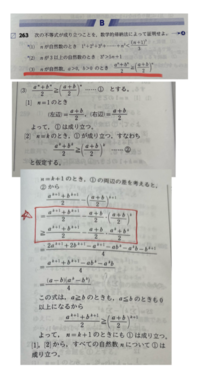 B
263 次の不等式が成り立つことを,数学的帰納法によって証明せよ。
(a^n+b^n)/2 ≧ ((a+b)/2)^n …… ① とする。
[1] n=1 のとき
(左辺)=(a+b)/2, (右辺)=(a+b)/2
よって, ① は成り立つ。
[2] n=k のとき, ① が成り立つ, すなわち
(a^k+b^k)/2 ≧ ((a+b)/2)^k …… ②
と仮定する。
n=k+1 のとき, ① の両辺の差を考えると,
② から
(a^(k+1)+b^(k+1))/2 − ((a+b)/2)^(k+1)
=(a^(k+1)+b^(k+1))/2 − (a+b)/2・((a+b)/2)^k
≧(a^(k+1)+b^(k+1))/2 − (a+b)/2・(a^k+b^k)/2
=(2a^(k+1)+2b^(k+1)−a^(k+1)−ab^k−a^k b−b^(k+1))/4
=(a^(k+1)+b^(k+1)−ab^k−a^k b)/4
=(a−b)(a^k−b^k)/4
この式は, a≧b のときも, a≦b のときも 0
以上になるから
(a^(k+1)+b^(k+1))/2 ≧ ((a+b)/2)^(k+1)
よって, n=k+1 のときにも ① は成り立つ。
[1], [2] から, すべての自然数 n について ① は
成り立つ。